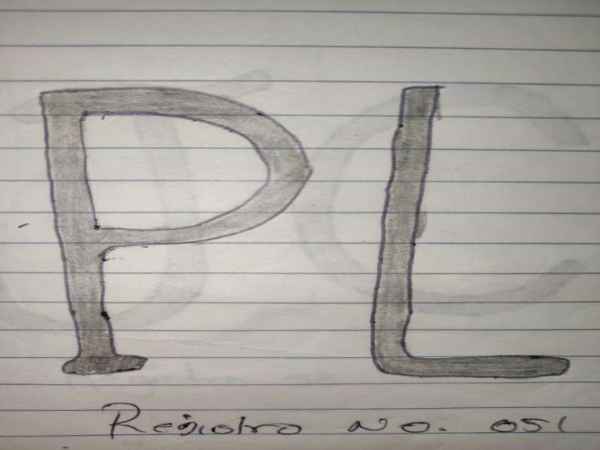 PL
Registro No. 051